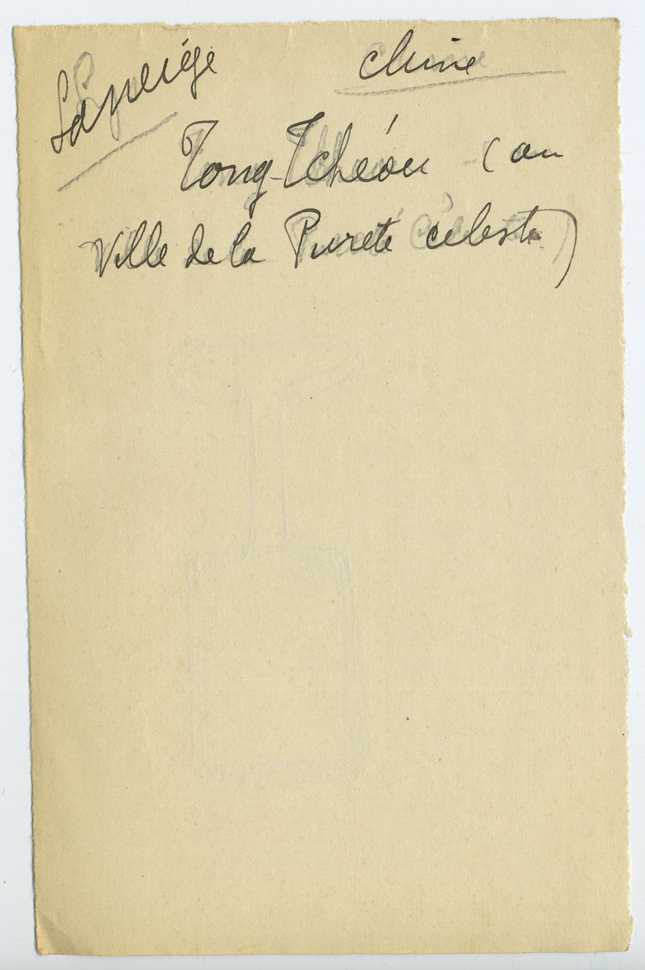 Lapeiége Chine
Tong-Tchéou (ou
Ville de la Pureté céleste)